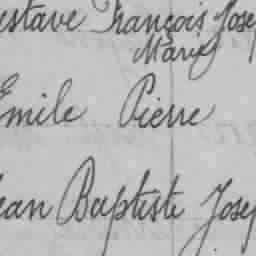 ustave François Jose
Marie
Emile Pierre
ean Baptiste Josep